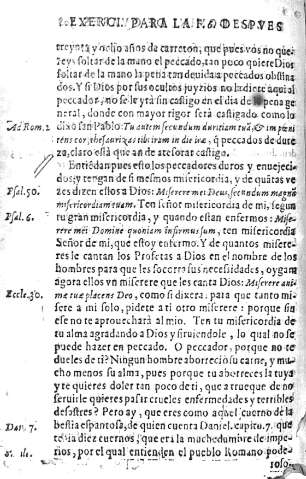 EXERCI. PARA LA DESPVES
treynta y ocho años de carreton, que pues vos no que-
reys soltar de la mano el peccado, tan poco quiere Dios
soltar de la mano la pena tan deuida a peccados obstina
dos. Y si Dios por sus ocultos juyzios no la diere aqui al
peccador, no se le yrà sin castigo en el dia de la pena ge
neral, donde con mayor rigor serà castigado. como lo
Ad Rom. 2. dixo san Pablo: Tu autem secundum duritiam tuã, & im pœni
tens cor, thesaurizas tibi iram in die iræ, q̃ peccados de dure
za, claro està que an de atesorar castigo.
Entiendan pues essos peccadores duros y enuejeci-
dos, y tengan de si mesmos misericordia, y de quãtas ve
Psal. 50. zes dizen ellos a Dios: Miserere mei Deus, secundum magnã
misericordiam tuam. Ten señor misericordia de mi, segun
Psal. 6. tu gran misericordia, y quando estan enfermos: Mise-
rere mei Domine quoniam infirmus sum, ten misericordia
Señor de mi, que estoy enfermo. Y de quantos misere-
res le cantan los Profetas a Dios en el nombre de los
hombres para que les socorra sus necessidades, oygan
agora ellos vn miserere que les canta Dios: Miserere ani-
Eccle. 30. mæ tuæ placens Deo, como si dixera: para que tanto mi-
sere a mi solo, pidete a ti otro miserere: porque sin
ese no te aprouecharà al mio. Ten tu misericordia de
tu alma agradando a Dios y siruiendole, lo qual no se
puede hazer en peccado. O peccador, porque no te
dueles de ti? Ningun hombre aborrecio su carne, y mu-
cho menos su alma, pues porque tu aborreces la tuya
y te quieres doler tan poco de ti, que a trueque de no
seruirle quieres pasar crueles enfermedades y terribles
desastres? Pero ay, que eres como aquel cuerno de la
Dan. 7. bestia espantosa, de quien cuenta Daniel. capitu. 7. que
tenia diez cuernos, que era la muchedumbre de impe-
rios, por el qual entienden el pueblo Romano pode-
roso